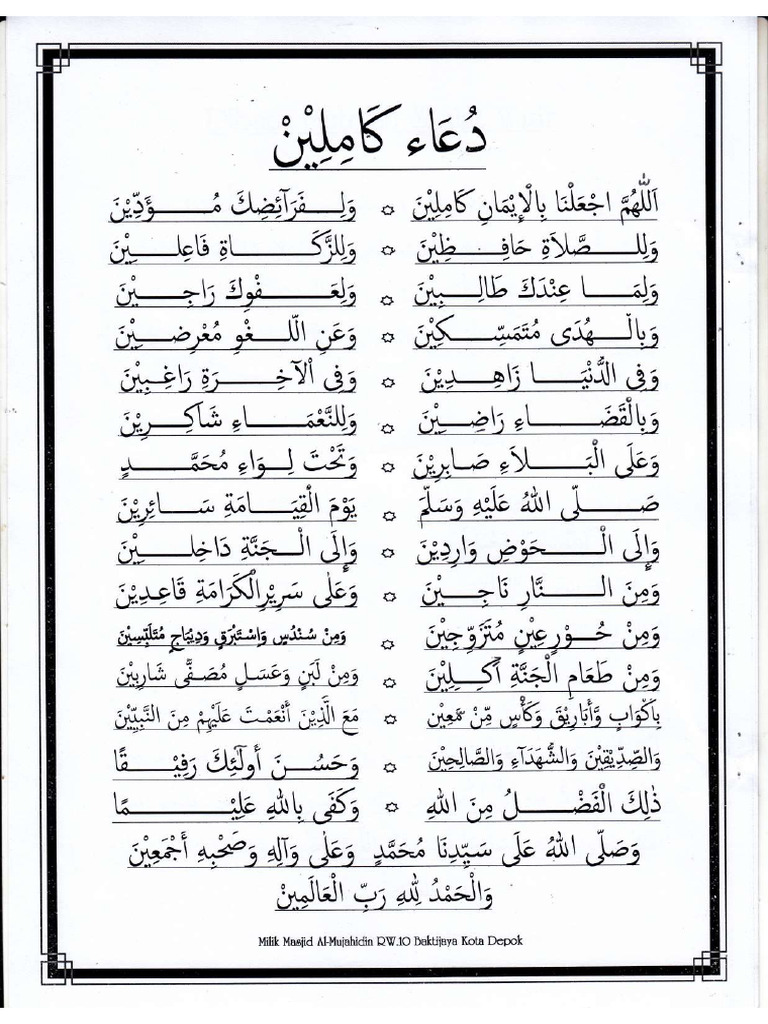 دُعَاء كَامِلِيْنْ
اَللّٰهُمَّ اجْعَلْنَا بِالْإِيْمَانِ كَامِلِيْنَ ۞ وَلِفَرَآئِضِكَ مُؤَدِّيْنَ
وَلِلصَّلاَةِ حَافِظِيْنَ ۞ وَلِلزَّكَاةِ فَاعِلِيْنَ
وَلِمَا عِنْدَكَ طَالِبِيْنَ ۞ وَلِعَفْوِكَ رَاجِيْنَ
وَبِالْهُدَى مُتَمَسِّكِيْنَ ۞ وَعَنِ الَّلغْوِ مُعْرِضِيْنَ
وَفِى الدُّنْيَا زَاهِدِيْنَ ۞ وَفِى الْآخِرَةِ رَاغِبِيْنَ
وَبِالْقَضَاءِ رَاضِيْنَ ۞ وَلِلنَّعْمَاءِ شَاكِرِيْنَ
وَعَلَى الْبَلاَءِ صَابِرِيْنَ ۞ وَتَحْتَ لِوَاءِ مُحَمَّدٍ
صَلَّى اللهُ عَلَيْهِ وَسَلَّمَ ۞ يَوْمَ الْقِيَامَةِ سَائِرِيْنَ
وَإِلَى الْحَوْضِ وَارِدِيْنَ ۞ وَإِلَى الْجَنَّةِ دَاخِلِيْنَ
وَمِنَ النَّارِ نَاجِيْنَ ۞ وَعَلٰى سَرِيْرِالْكَرَامَةِ قَاعِدِيْنَ
وَمِنْ حُوْرِعِيْنٍ مُتَزَوِّجِيْنَ ۞ وَمِنْ سُنْدُسٍ وَاِسْتَبْرَقٍ وَدِيْبَاجٍ مُتَلَبِّسِيْنَ
وَمِنْ طَعَامِ الْجَنَّةِ آكِلِيْنَ ۞ وَمِنْ لَبَنٍ وَعَسَلٍ مُصَفًّى شَارِبِيْنَ
بِاَكْوَابٍ وَّأَبَارِيْقَ وَكَأْسٍ مِّنْ مَّعِيْنٍ ۞ مَعَ الَّذِيْنَ أَنْعَمْتَ عَلَيْهِمْ مِنَ النَّبِيِّيْنَ
وَالصِّدِّيْقِيْنَ وَالشُّهَدَآءِ وَالصَّالِحِيْنَ ۞ وَحَسُنَ أُولَآئِكَ رَفِيْقًا
ذٰلِكَ الْفَضْلُ مِنَ اللهِ ۞ وَكَفَى بِاللهِ عَلِيْمًا
وَصَلَّى اللهُ عَلَى سَيِّدِنَا مُحَمَّدٍ وَعَلٰى وَآلِهِ وَصَحْبِهِ أَجْمَعِيْنَ
وَالْحَمْدُ لِلهِ رَبِّ الْعَالَمِيْنَ
Milik Masjid Al-Mujahidin RW.10 Baktijaya Kota Depok